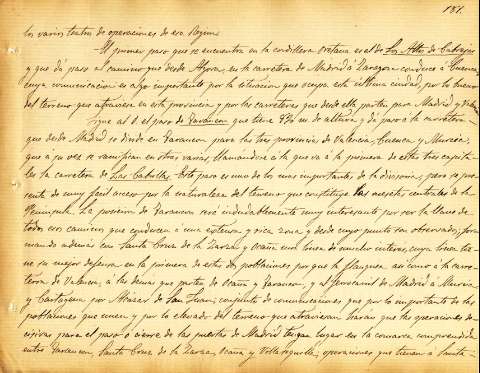 181.
los varios teatros de operaciones de esa region.
El primer paso que se encuentra en la cordillera Oretana es el de Los Altos de Cabrejas
y que dá paso al camino que desde en la carretera de Madrid á Zaragoza conduce á Cuenca
cuya comunicacion es algo importante por la situacion que ocupa esta última ciudad, por lo
del terreno que atraviesa en esta provincia y por las carreteras que desde ella parten para Madrid y
Sigue al O. el paso de Tarancon que tiene de altitud y dá paso á la carretera
que desde Madrid se divide en Tarancon para las tres provincias de Valencia, Cuenca y Murcia,
que á su vez se ramifican en otras varias, llamandose á la que va á la primera de estas tres capita-
les la carretera de Las Cabrillas. Este paso es uno de los mas importantes de la divisoria, pero se pre-
senta de muy facil acceso por la naturaleza del terreno que constituye las mesetas centrales de la
Peninsula. La posesion de Tarancon será indudablemente muy interesante por ser la llave de
todos esos caminos que conducen á una extensa y rica zona y desde cuyo punto son observados; for-
mando además con Santa Cruz de la Zarza y Ocaña una linea de mucho interes, cuya linea tie-
ne su mayor defensa en la primera de estas dos poblaciones por que la flanquea asi como á la carre-
tera de Valencia, á las demas que parten de Ocaña y Tarancon, y al ferrocarril de Madrid á Murcia
y Cartagena por Alcazar de San Juan; conjunto de comunicaciones que por lo importante de las
poblaciones que unen y por lo elevado del terreno que atraviesan harán que las operaciones de-
cisivas para el paso ó cierre de las puertas de Madrid tengan lugar en la comarca comprendida
entre Tarancon, Santa Cruz de la Zarza, Ocaña y Villasequilla; operaciones que tienen á Santa-